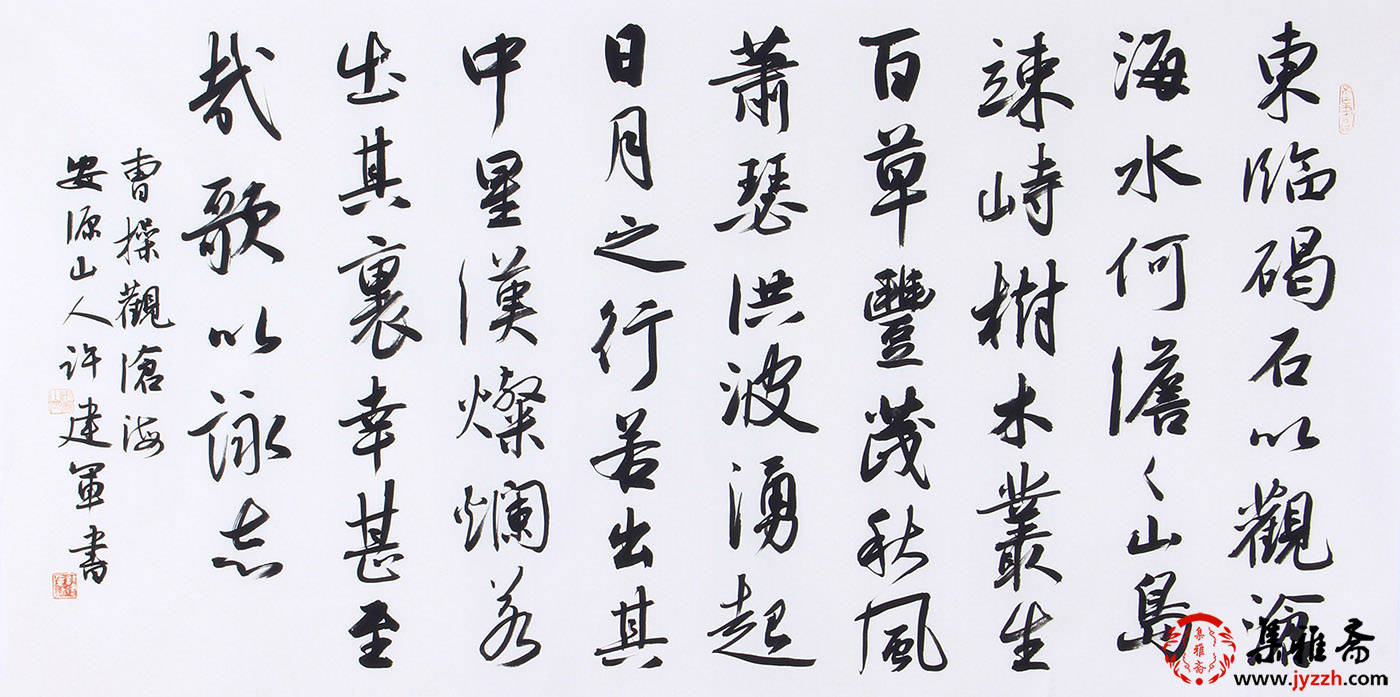 東臨碣石以觀滄
海水何澹々山島
竦峙樹木叢生
百草豐茂秋風
蕭瑟洪波湧起
日月之行若出其
中星漢燦爛若
出其裏幸甚至
哉歌以詠志
曹操觀滄海
安源山人許建軍書
集雅斋
集雅斋
www.jyzzh.com